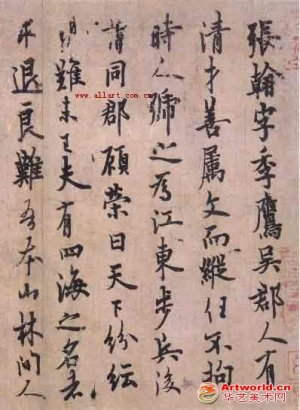 張翰字季鷹吳郡人有
清才善屬文而縱任不拘
時人號之為江東步兵後
謂同郡顧榮曰天下紛紜
禍難未已夫有四海之名者
求退良難吾本山林間人
www.allart.com.cn
Artworld.cn
华艺美术网